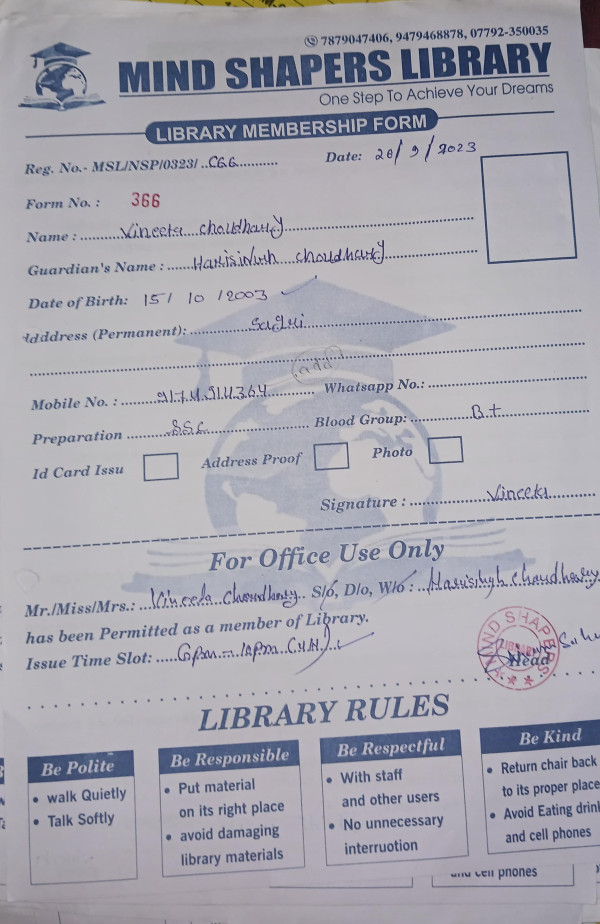 7879047406, 9479468878, 07792-350035
MIND SHAPERS LIBRARY
One Step To Achieve Your Dreams
LIBRARY MEMBERSHIP FORM
Reg. No.- MSL/NSP/0323/..CGG...........
Date: 20/9/2023
Form No. : 366
Name : Vineeta choudhary
Guardian's Name : choudhary
Date of Birth: 15/10/2003
Adddress (Permanent):
Mobile No. : Whatsapp No.:
Preparation SSC Blood Group: B+
Id Card Issu Address Proof Photo
Signature : Vineeta
For Office Use Only
Mr./Miss/Mrs.: Vineeta Choudhary S/o, D/o, W/o : Choudhary
has been Permitted as a member of Library.
Issue Time Slot: 6pm - 10pm
MIND SHAPERS
LIBRARY
Head
LIBRARY RULES
Be Polite
• walk Quietly
• Talk Softly
Be Responsible
• Put material
on its right place
• avoid damaging
library materials
Be Respectful
• With staff
and other users
• No unnecessary
interruotion
Be Kind
• Return chair back
to its proper place
• Avoid Eating drin
and cell phones
and cell phones